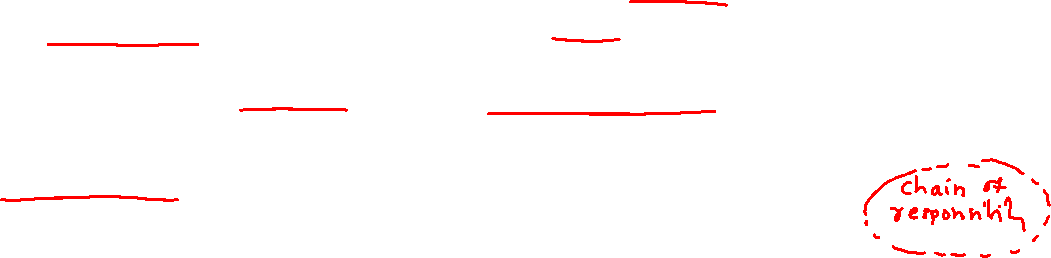 chain of
responsibility